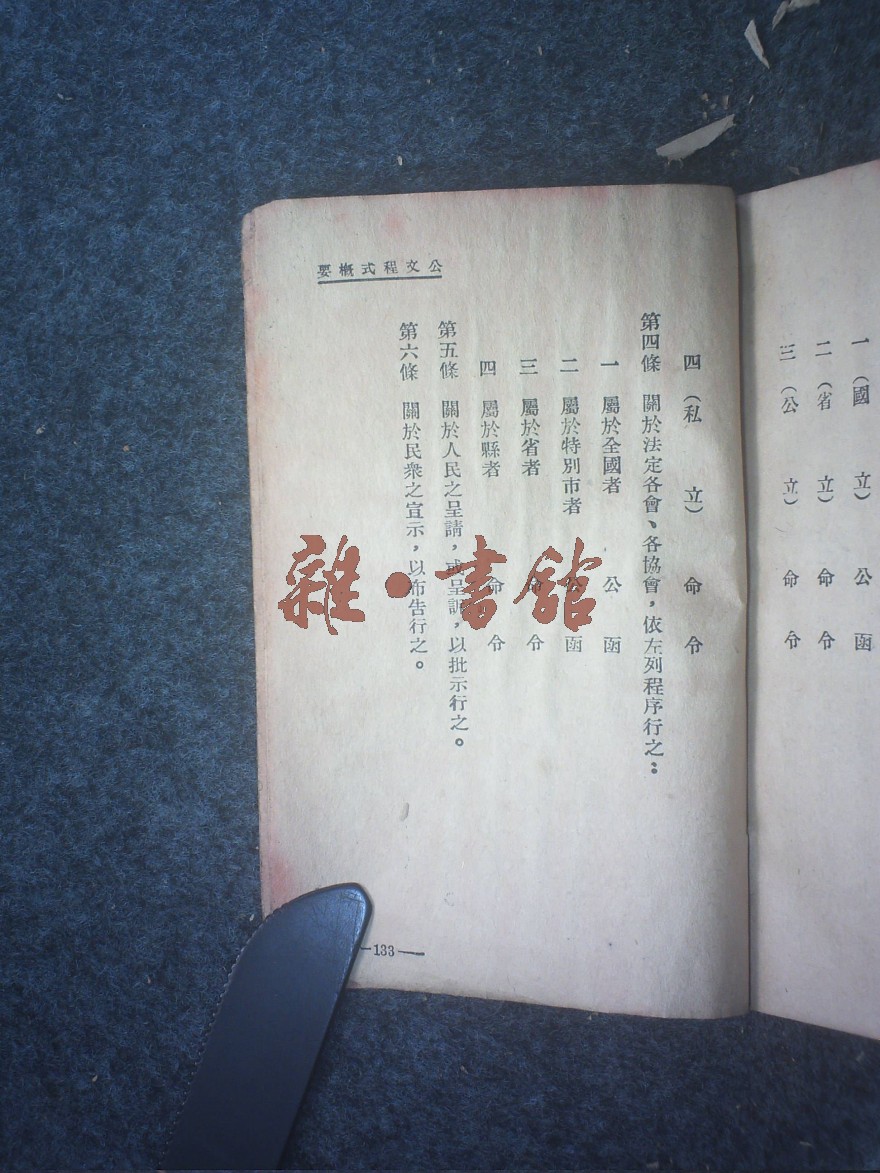 一（國　立）　公　函
二（省　立）　命　令
三（公　立）　命　令
公文程式概要
四（私　立）　命　令
第四條　關於法定各會、各協會，依左列程序行之：
一　屬於全國者　公　函
二　屬於特別市者　公　函
三　屬於省者　命　令
四　屬於縣者　命　令
第五條　關於人民之呈請，或呈訴，以批示行之。
第六條　關於民衆之宣示，以布告行之。
—133—
雜·書館